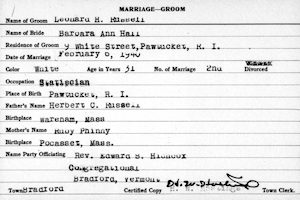 MARRIAGE—GROOM
Name of Groom Leonard H. Russell
Name of Bride Barbara Ann Hall
Residence of Groom 9 White Street, Pawtucket, R. I.
Date of Marriage February 6, 1940
Color White Age in Years 31 No. of Marriage 2nd Widowed Divorced
Occupation
Place of Birth Pawtucket, R. I.
Father's Name Herbert C. Russell
Birthplace Wareham, Mass
Mother's Name Ruby Phinny
Birthplace Pocasset, Mass.
Name Party Officiating Rev. Edward S. Hichcox
Congregational
Bradford, Vermont
Town Bradford Certified Copy Town Clerk.